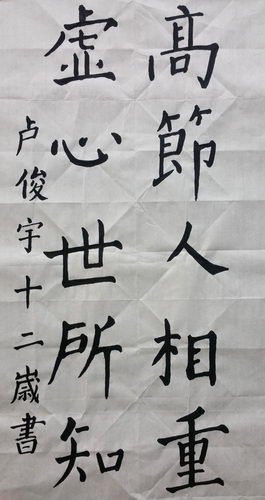 髙節人相重
虚心世所知
卢俊宇十二歲書